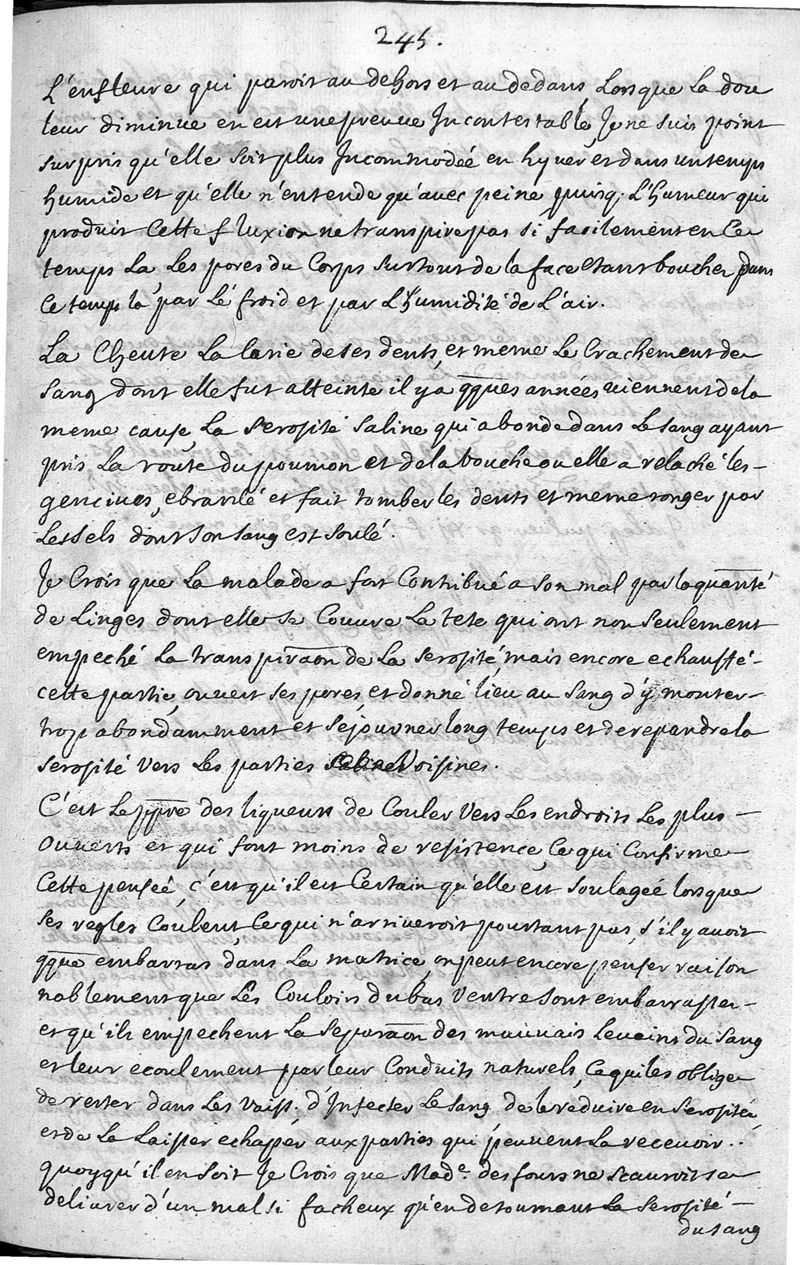 245.
L'enfleure qui paroit au dehors et au dedans Lorsque La dou
leur diminue en est une preuve Incontestable, Je ne suis point
surpris qu'elle soit plus Incommodée en hyver et dans un temps
humide et qu'elle n'entende qu'avec peine puisq. L'humeur qui
produit Cette fluxion ne transpire pas si facilement en Ce
temps La, Les pores du Corps surtout de la face etant bouchez dans
Ce temp la par Le froid et par L'humidité de L'air.
La Cheute La Carie de ses dents, et meme Le Crachement de
sang dont elle fut atteinte il y a qques années viennent de la
meme cause, La serosité saline qui abonde dans Le sang ayant
pris La route du poumon et de la bouche ou elle a relaché les -
gencives, ebranlé et fait tomber les dents et meme ronger par
Les sels dont son sang est soulé.
Je Crois que La malade a fort Contribué a son mal par la quantité
de Linges dont elle se Couvre La tete qui ont non seulement
empeché La transpiraon de La serosité, mais encore echauffé -
cette partie, ouvert ses pores, et donné lieu au sang d'y monter -
trop abondamment et sejourner long temps et de repandre la
serosité vers Les parties Voisines.
C'est Le ppre des liqueurs de Couler vers Les endroits Les plus -
ouverts et qui font moins de resistence, Ce qui Confirme
Cette pensée, c'est qu'il est Certain qu'elle est soulagée lorsque
ses regles Coulent, Ce qui n'arriveroit pourtant pas, s'il y avoit
qque embarras dans La matrice, on peut encore penser raison
nablement que Les Couloirs du bas Ventre sont embarassez -
et qu'ils empechent La separaon des mauvais Levains du sang
et leur ecoulement par leur Conduits naturels, Ce qui les oblige
de rester dans Les vaiss. d'Infecter Le sang de le reduire en serosité,
et de La Laisser echaper aux parties qui peuvent La recevoir..
quoy qu'il en soit Je Crois que Made. desfours ne scauroit se
delivrer d'un mal si facheux qu'en detournant La serosité -
du sang